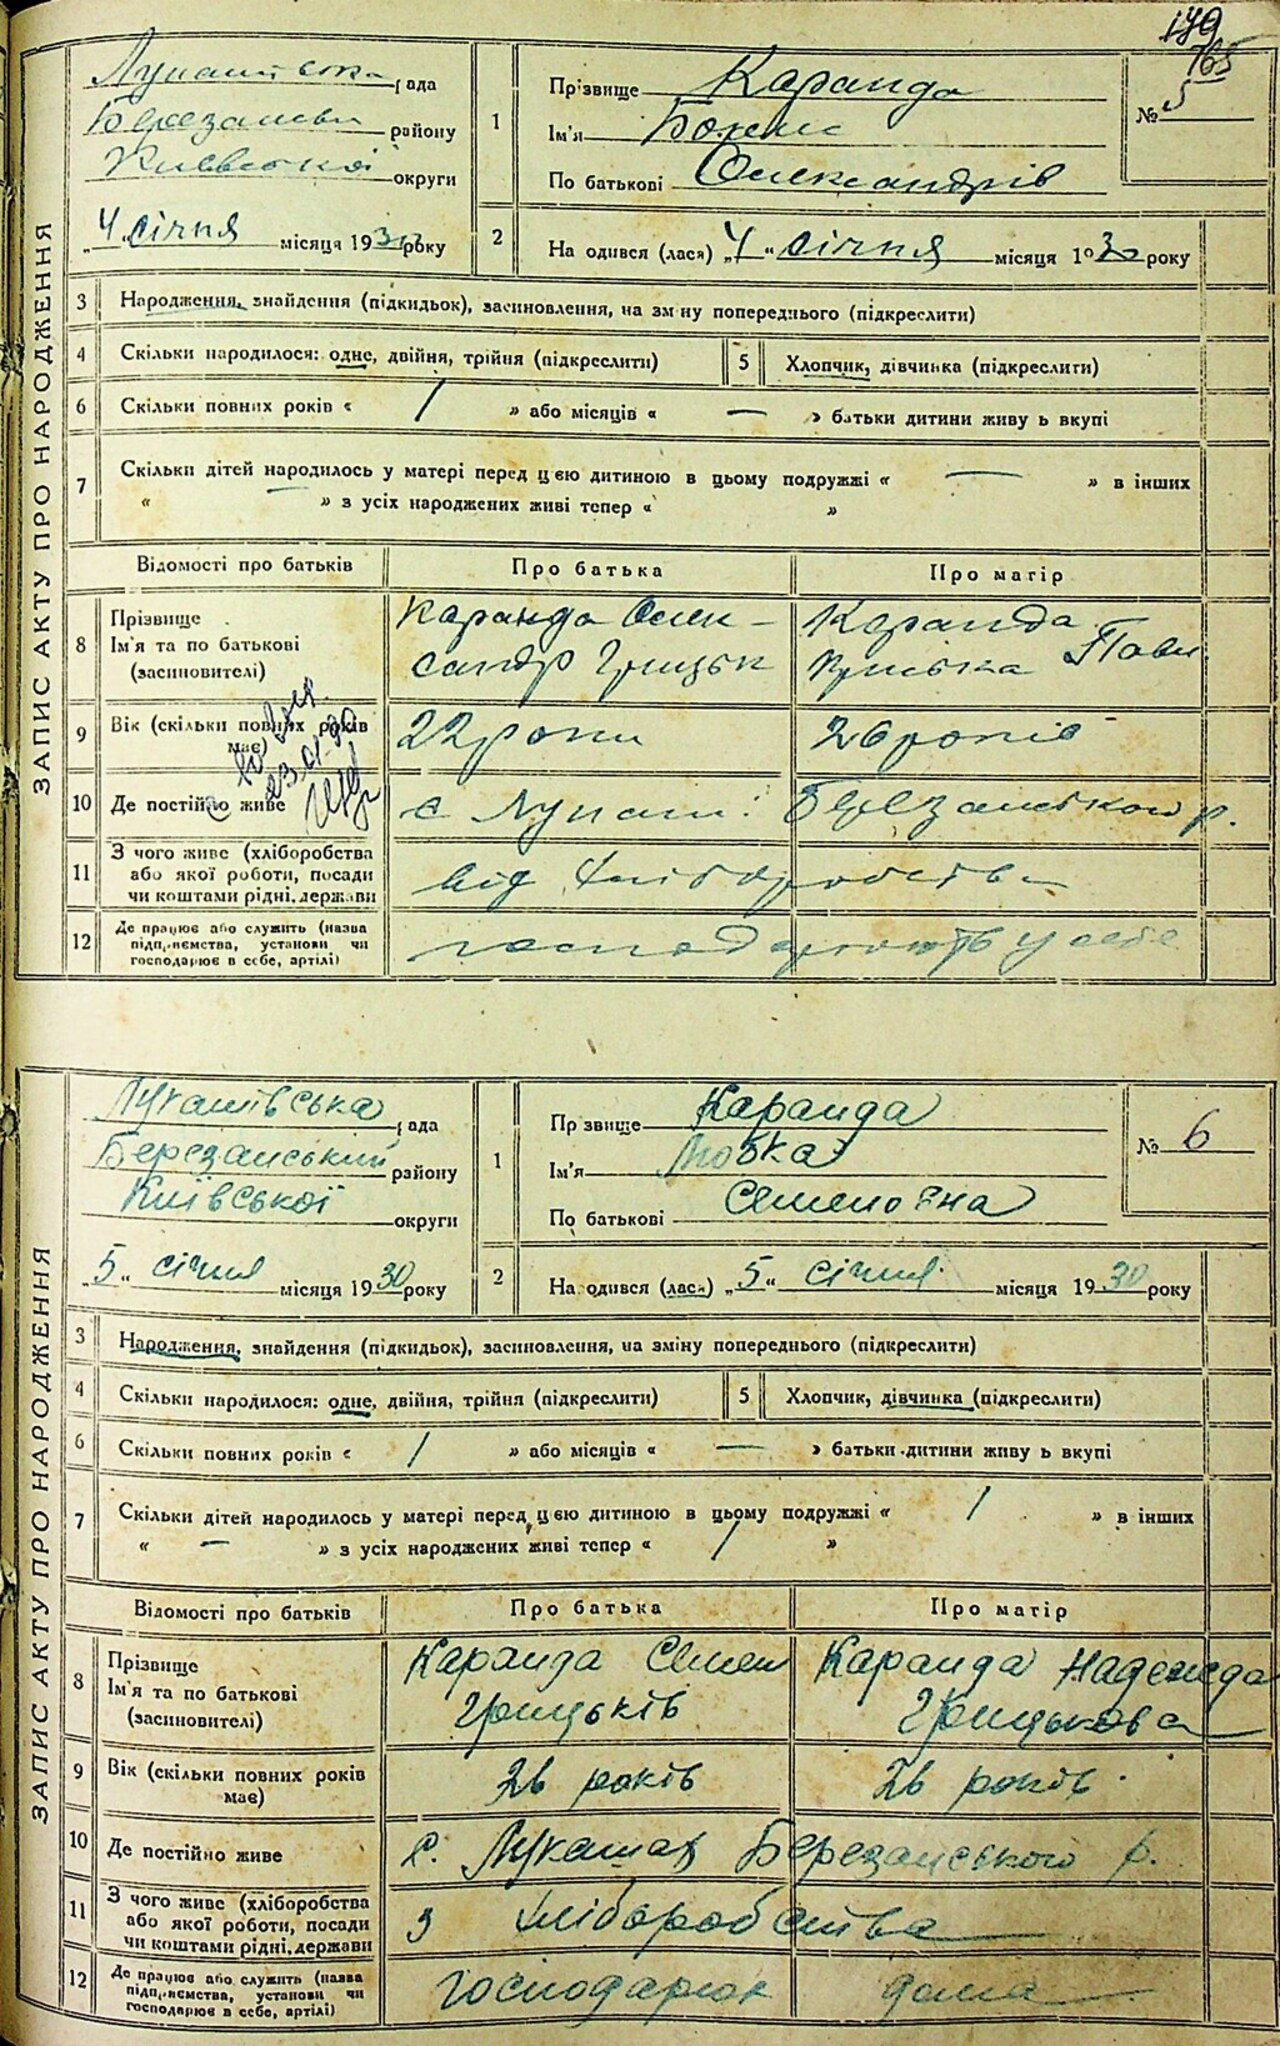 179
165
Лукашівська рада
Березанськ району
Київської округи
„4“ січня місяця 1930 року
1
Прізвище Каранда
Ім'я Борис
По батькові Олександрів
№ 5
2
На одився (лася) „4“ січня місяця 1930 року
ЗАПИС АКТУ ПРО НАРОДЖЕННЯ
3 Народження, знайдення (підкидьок), засиновлення, на зміну попереднього (підкреслити)
4 Скільки народилося: одне, двійня, трійня (підкреслити) 5 Хлопчик, дівчинка (підкреслити)
6 Скільки повних років « / » або місяців « — » батьки дитини живуть вкупі
7 Скільки дітей народилось у матері перед цією дитиною в цьому подружжі « — » в інших
« — » з усіх народжених живі тепер « »
Відомості про батьків Про батька Про матір
8 Прізвище Ім'я та по батькові (засиновителі)
Каранда Олек-
сандр Грицьк
Каранда
Павл
9 Вік (скільки повних років має) 22 роки 26 років
23.01.30
10 Де постійно живе с Лукаші Березанського р.
11 З чого живе (хліборобства або якої роботи, посади чи коштами рідні, держави від хліборобства
12 Де працює або служить (назва підприємства, установи чи господарює в себе, артілі) господарюють у себе
Лукашівська рада
Березанський району
Київської округи
„5“ січня місяця 1930 року
1
Прізвище Каранда
Ім'я Любка
По батькові Семеновна
№ 6
2
На одився (лася) „5“ січня місяця 1930 року
ЗАПИС АКТУ ПРО НАРОДЖЕННЯ
3 Народження, знайдення (підкидьок), засиновлення, на зміну попереднього (підкреслити)
4 Скільки народилося: одне, двійня, трійня (підкреслити) 5 Хлопчик, дівчинка (підкреслити)
6 Скільки повних років « / » або місяців « — » батьки дитини живуть вкупі
7 Скільки дітей народилось у матері перед цією дитиною в цьому подружжі « / » в інших
« — » з усіх народжених живі тепер « / »
Відомості про батьків Про батька Про матір
8 Прізвище Ім'я та по батькові (засиновителі)
Каранда Семен
Грицьків
Каранда Надежда
Грицькова
9 Вік (скільки повних років має) 26 років 26 років
10 Де постійно живе с. Лукашах Березанського р.
11 З чого живе (хліборобства або якої роботи, посади чи коштами рідні, держави з хліборобства
12 Де працює або служить (назва підприємства, установи чи господарює в себе, артілі) господарює дома